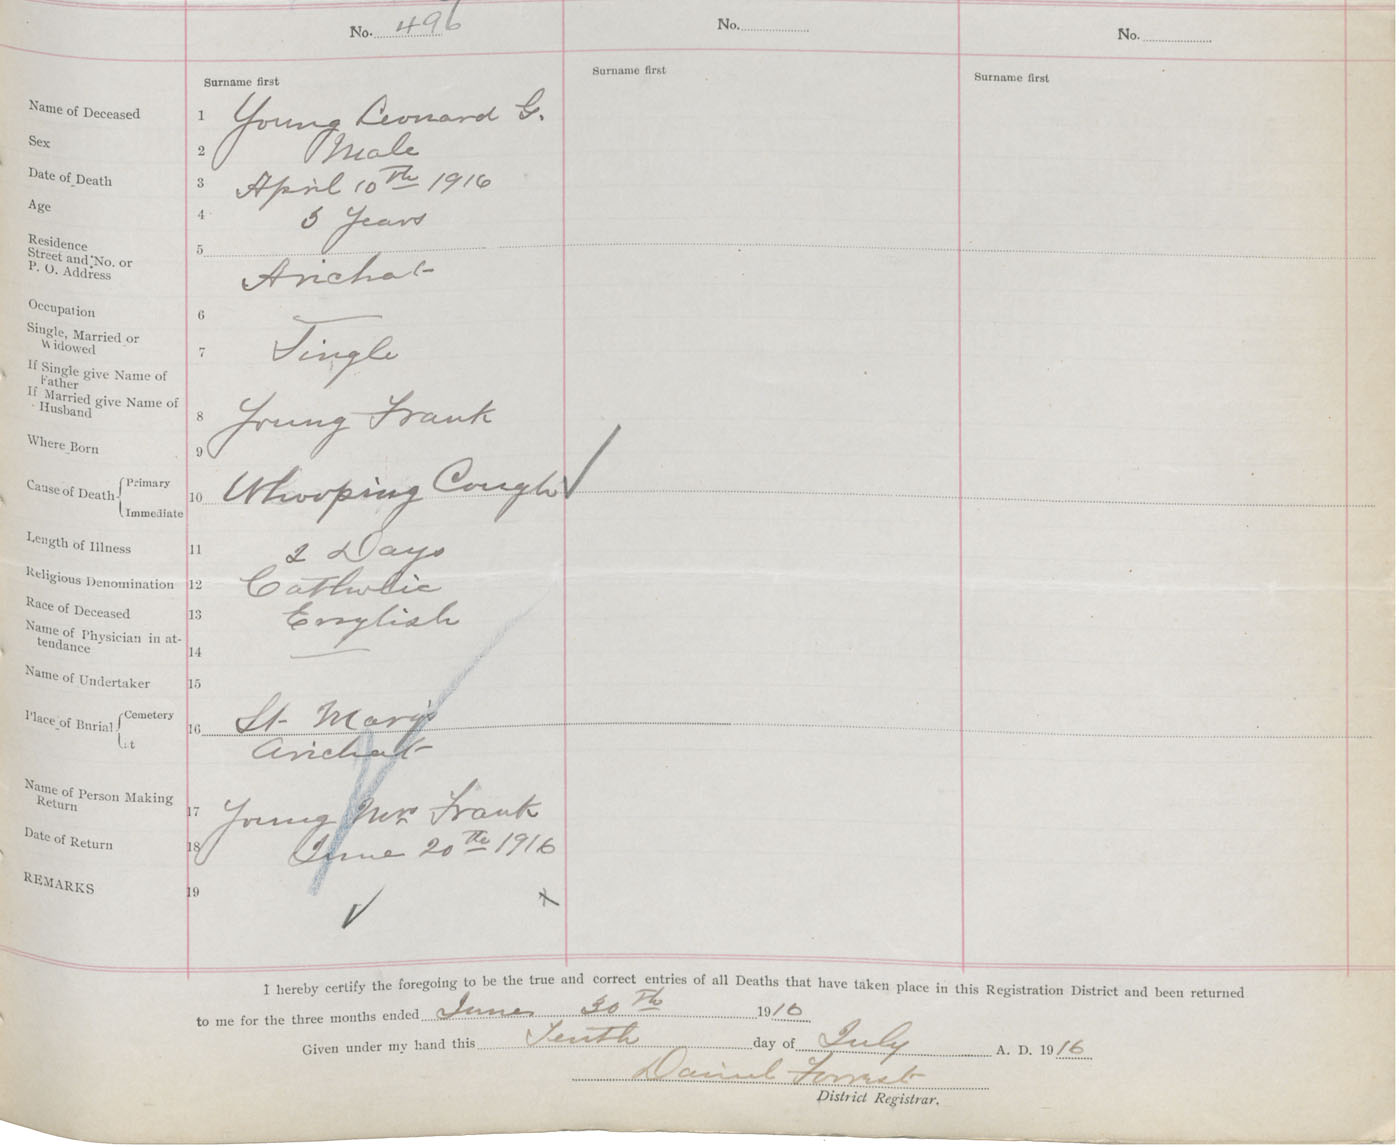 No. 496
No.
No.
Surname first
Surname first
Surname first
Name of Deceased 1 Young Leonard G.
Sex 2 Male
Date of Death 3 April 10th 1916
Age 4 5 Years
Residence
Street and No. or 5
P. O. Address Arichat
Occupation 6
Single, Married or
Widowed 7 Single
If Single give Name of
Father
If Married give Name of
Husband 8 Young Frank
Where Born 9
Cause of Death { Primary
10 Whooping Cough
Immediate
Length of Illness 11 2 Days
Religious Denomination 12 Catholic
Race of Deceased 13 English
Name of Physician in at-
tendance 14
Name of Undertaker 15
Place of Burial { Cemetery
16 St. Mary's
Arichat
Name of Person Making
Return 17 Young Mrs Frank
Date of Return 18 June 20th 1916
REMARKS 19
I hereby certify the foregoing to be the true and correct entries of all Deaths that have taken place in this Registration District and been returned
to me for the three months ended June 30th 1916
Given under my hand this Tenth day of July A. D. 1916
Daniel Forrest
District Registrar.